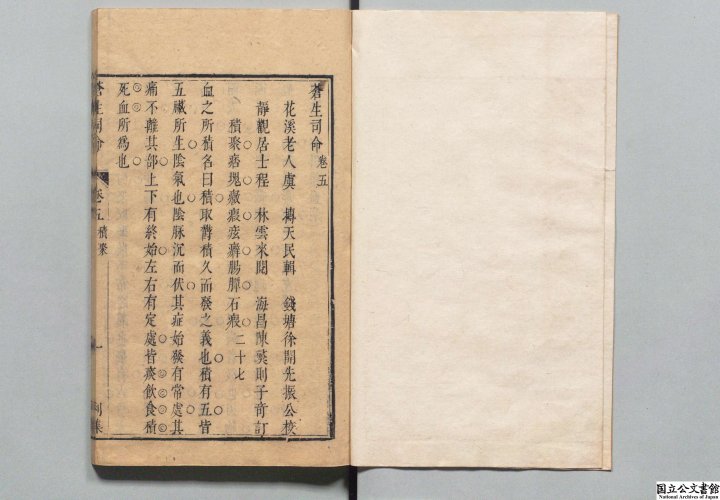 蒼生司命 卷五
花溪老人虞 摶天民輯 錢塘徐開先振公校
靜觀居士程 林雲來閱 海昌陳 則子奇訂
積聚痞塊癥瘕痃癖腸覃石瘕 二十七
血之所積名曰積取欝積久而發之義也積有五皆
五臟所生陰氣也陰脉沉而伏其症始發有常處其
痛不離其部上下有終始左右有定處皆痰飲食積
死血所爲也
蒼生司命 卷五 積聚 一 利集
国立公文書館
National Archives of Japan